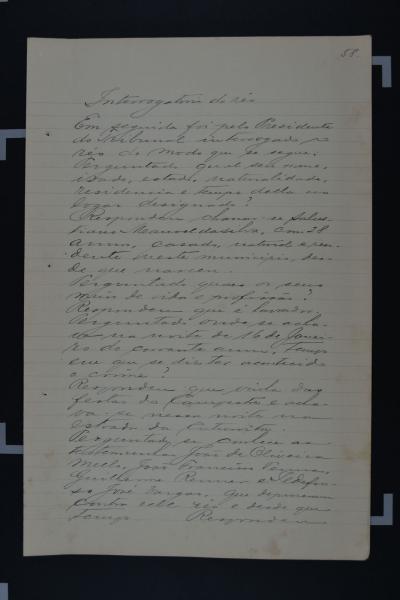 58.
Interrogatorio do réo
Em seguida foi pelo Presidente
do Tribunal interrogado o
réo do modo que se segue.
Perguntado qual seu nome,
idade, estado, naturalidade,
residencia e tempo della no
logar designado?
Respondeu chamar-se Salus-
tiano Manoel da Silva, com 28
annos, casado, natural e resi-
dente neste municipio, des-
de que nasceu.
Perguntado quaes os seus
meios de vida e profissão?
Respondeu que é lavrador.
Perguntado onde se acha-
va na noite de 16 de Janei-
ro do corrente anno, tempo
em que se diz ter acontecido
o crime?
Respondeu que vinha das
festas da e acha-
va-se nessa noite na
estrada da
Perguntado se conhece as
testemunhas João de Oliveira
Mello, João Francisco
Guilherme e Idelfon-
so José Vargas, que depuzeram
contra elle réo e desde que
tempo. Respondeu